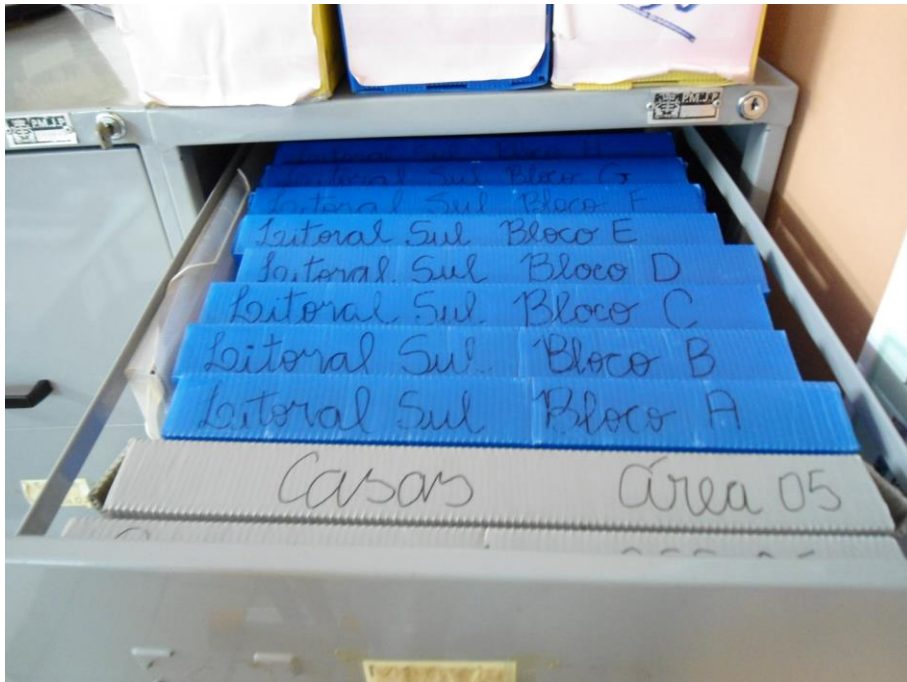 P.M.J.P.
P.M.J.P.
Litoral Sul Bloco H
Litoral Sul Bloco G
Litoral Sul Bloco F
Litoral Sul Bloco E
Litoral Sul Bloco D
Litoral Sul Bloco C
Litoral Sul Bloco B
Litoral Sul Bloco A
Casas Área 05